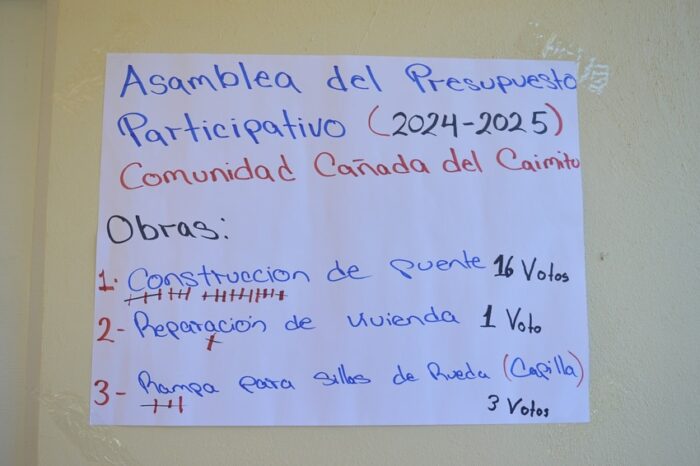 Asamblea del Presupuesto
Participativo (2024-2025)
Comunidad Cañada del Caimito
Obras:
1. Construccion de puente 16 Votos
2- Reparación de vivienda 1 Voto
3- Rampa para sillas de Rueda (Capilla)
3 Votos